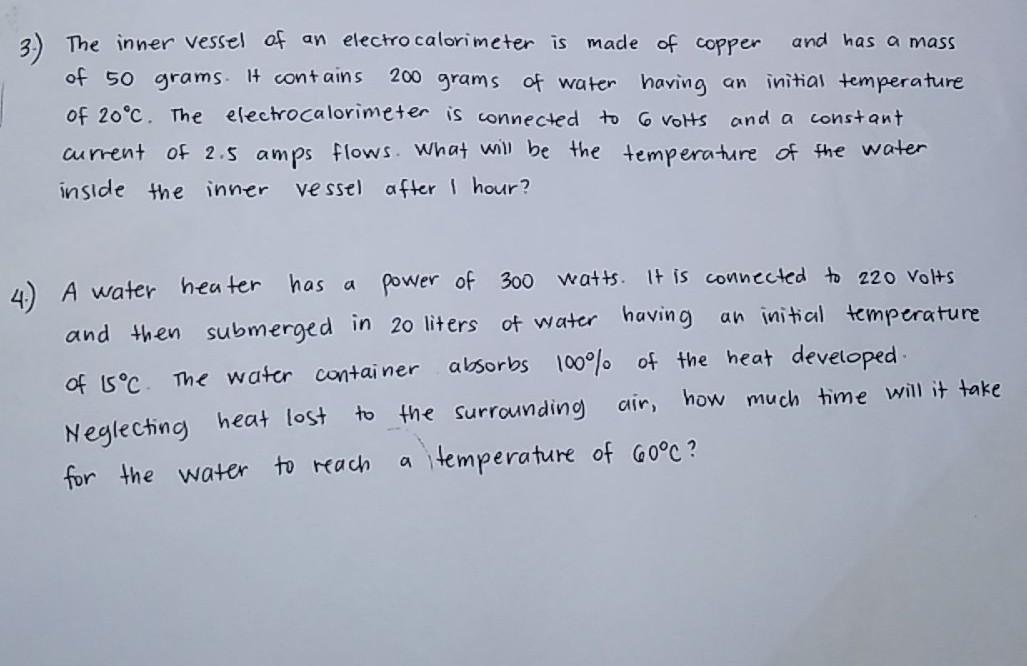 3.) The inner vessel of an electrocalorimeter is made of copper and has a mass
of 50 grams. It contains 200 grams of water having an initial temperature
of 20°C. The electrocalorimeter is connected to 6 volts and a constant
current of 2.5 amps flows. What will be the temperature of the water
inside the inner vessel after 1 hour?
4.) A water heater has a power of 300 watts. It is connected to 220 volts
and then submerged in 20 liters of water having an initial temperature
of 15°C. The water container absorbs 100% of the heat developed.
Neglecting heat lost to the surrounding air, how much time will it take
for the water to reach a temperature of 60°C?